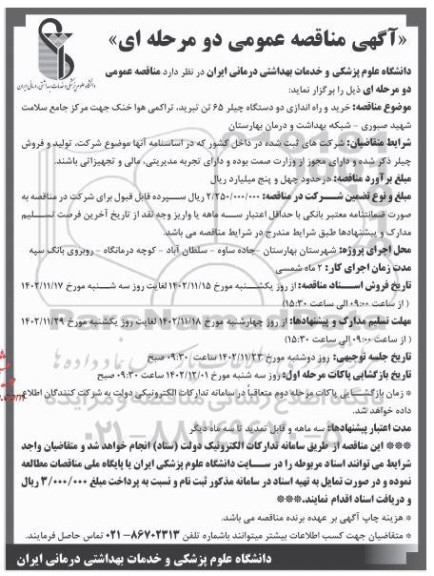 «آگهی مناقصه عمومی دو مرحله ای»
دانشگاه علوم پزشکی و خدمات بهداشتی درمانی ایران
دانشگاه علوم پزشکی و خدمات بهداشتی درمانی ایران در نظر دارد مناقصه عمومی
دو مرحله ای ذیل را برگزار نماید:
موضوع مناقصه: خرید و راه اندازی دو دستگاه چیلر ۶۵ تن تبرید، تراکمی هوا خنک جهت مرکز جامع سلامت
شهید صبوری – شبکه بهداشت و درمان بهارستان
شرایط متقاضیان: شرکت های ثبت شده در داخل کشور که در اساسنامه آنها موضوع شرکت، تولید و فروش
چیلر ذکر شده و دارای مجوز از وزارت صمت بوده و دارای تجربه مدیریتی، مالی و تجهیزاتی باشند.
مبلغ برآورد مناقصه: در حدود چهل و پنج میلیارد ریال
مبلغ و نوع تضمین شرکت در مناقصه: ۲/۲۵۰/۰۰۰/۰۰۰ ریال سپرده قابل قبول برای شرکت در مناقصه به
صورت ضمانتنامه معتبر بانکی با حداقل اعتبار سه ماهه یا واریز وجه نقد از تاریخ آخرین فرصت تسلیم
مدارک و پیشنهادها طبق شرایط مندرج در شرایط مناقصه می باشد.
محل اجرای پروژه: شهرستان بهارستان –جاده ساوه – سلطان آباد – کوچه درمانگاه – روبروی بانک سپه
مدت زمان اجرای کار: ۲ ماه شمسی
تاریخ فروش اسناد مناقصه: از روز یکشنبه مورخ ۱۴۰۲/۱۱/۱۵ لغایت روز سه شنبه مورخ ۱۴۰۲/۱۱/۱۷
( از ساعت ۰۹:۰۰ الی ساعت ۱۵:۳۰)
مهلت تسلیم مدارک و پیشنهادها: از روز چهارشنبه مورخ ۱۴۰۲/۱۱/۱۸ لغایت روز یکشنبه مورخ ۱۴۰۲/۱۱/۲۹
( از ساعت ۰۹:۰۰ الی ساعت ۱۵:۳۰)
تاریخ جلسه توجیهی: روز دوشنبه مورخ ۱۴۰۲/۱۱/۲۳ ساعت ۰۹:۳۰ صبح
تاریخ بازگشایی پاکات مرحله اول: روز سه شنبه مورخ ۱۴۰۲/۱۲/۰۱ ساعت ۰۹:۳۰ صبح
* زمان بازگشایی پاکات مرحله دوم متعاقباً در سامانه تدارکات الکترونیکی دولت به شرکت کنندگان اطلاع
داده خواهد شد.
مدت اعتبار پیشنهادها: سه ماهه و قابل تمدید تا سه ماه دیگر
*** این مناقصه از طریق سامانه تدارکات الکترونیک دولت (ستاد) انجام خواهد شد و متقاضیان واجد
شرایط می توانند اسناد مربوطه را در سایت دانشگاه علوم پزشکی ایران یا پایگاه ملی مناقصات مطالعه
نموده و در صورت تمایل به تهیه اسناد در سامانه مذکور ثبت نام و نسبت به پرداخت مبلغ ۳/۰۰۰/۰۰۰ ریال
و دریافت اسناد اقدام نمایند.***
* هزینه چاپ آگهی بر عهده برنده مناقصه می باشد.
* متقاضیان جهت کسب اطلاعات بیشتر میتوانند باشماره تلفن ۸۶۷۰۲۳۱۳-۰۲۱ تماس حاصل فرمایند.
دانشگاه علوم پزشکی و خدمات بهداشتی درمانی ایران